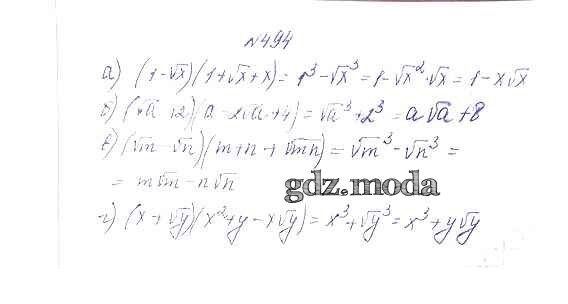 №494
а) (1-√x)(1+√x+x)= 1³-√x³=1-√x²·√x=1-x√x
б) (√a+2)(a-2√a+4)=√a³+2³=a√a+8
в) (√m-√n)(m+n+√mn)=√m³-√n³=
= m√m-n√n
gdz.moda
г) (x+√y)(x²+y-x√y)=x³+√y³=x³+y√y